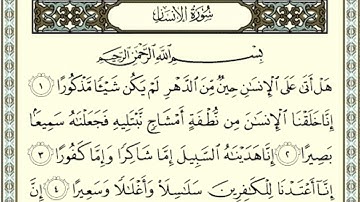 سُورَةُ الْإِنْسَانِ
بِسْمِ اللَّهِ الرَّحْمَٰنِ الرَّحِيمِ
هَلْ أَتَىٰ عَلَى الْإِنسَانِ حِينٌ مِّنَ الدَّهْرِ لَمْ يَكُن شَيْئًا مَّذْكُورًا ١
إِنَّا خَلَقْنَا الْإِنسَانَ مِن نُّطْفَةٍ أَمْشَاجٍ نَّبْتَلِيهِ فَجَعَلْنَاهُ سَمِيعًا
بَصِيرًا ٢ إِنَّا هَدَيْنَاهُ السَّبِيلَ إِمَّا شَاكِرًا وَإِمَّا كَفُورًا ٣
إِنَّا أَعْتَدْنَا لِلْكَافِرِينَ سَلَاسِلَا وَأَغْلَالًا وَسَعِيرًا ٤ إِنَّ